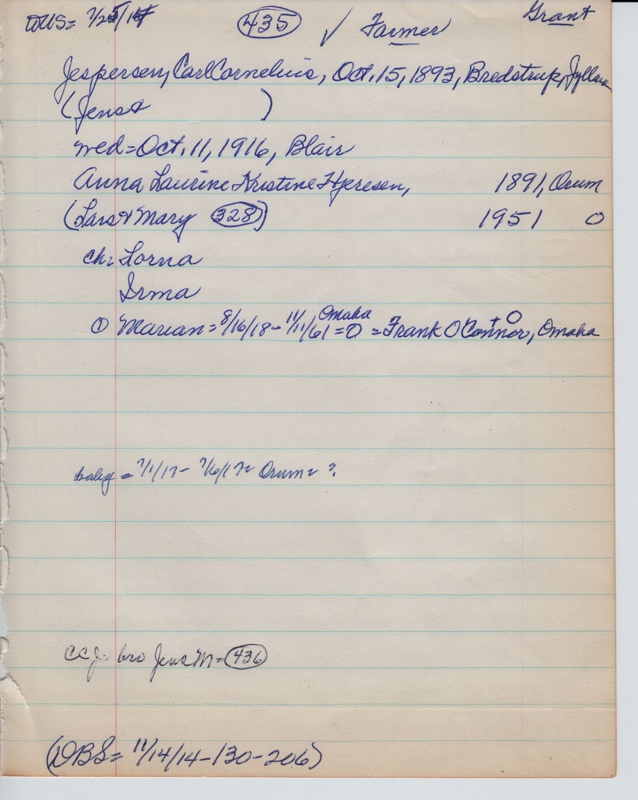 DUS= 7/25/14 435 ✓ Farmer Grant
Jespersen, Carl Cornelius, Oct. 15, 1893, Bredstrup, Jylland
(Jens & )
wed=Oct. 11, 1916, Blair
Anna Laurine Kristine Hjeresen, 1891, Orum
(Lars & Mary 328) 1951 O
ch= Lorna
Irma
① Marian= 8/16/18- 11/11/61 Omaha =O =Frank O'Connor, + O Omaha
baby = 7/1/17- 7/6/17= Orum= ?
CCJ= bro Jens M= 436
(DBS= 11/14/14-130-206)